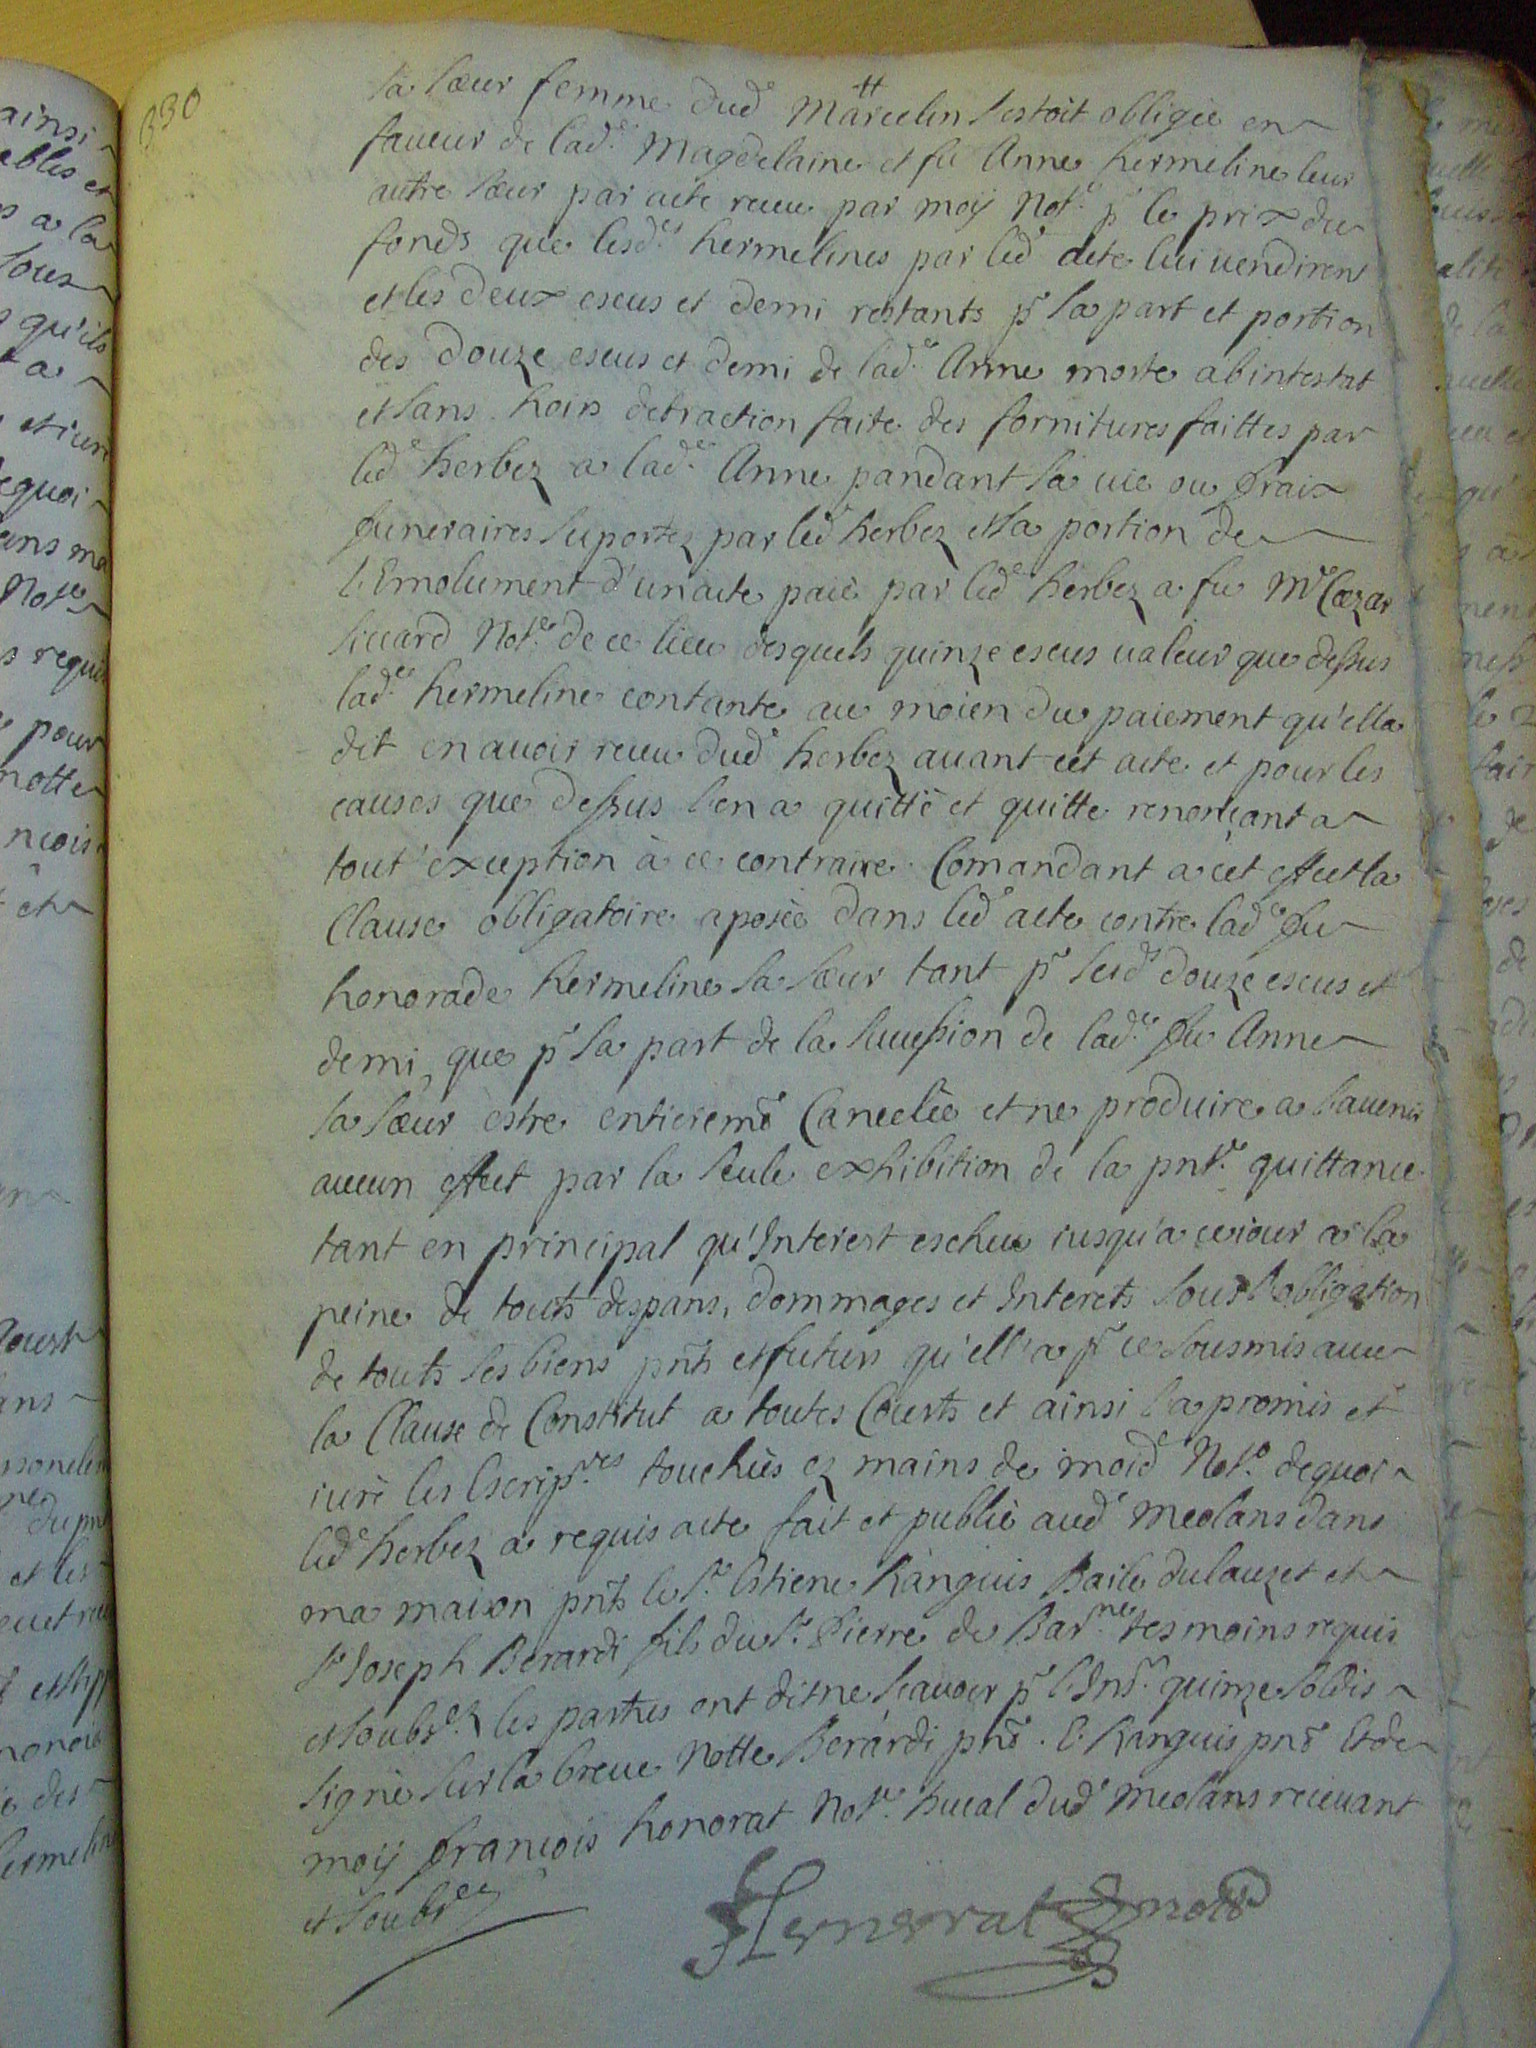 330
sa sœur femme dud.e Marcelin s'estoit obligée en
faueur de lad.e Magdelaine et fû Anne hermeline leur
autre sœur par acte receu par moÿ Not.e pr le prix du
fonds que lesd.es hermelines par led.e acte lui uendirent
et les deux escus et demi restants pr sa part et portion
des douze escus et demi de lad.e Anne morte abintestat
et sans hoirs detraction faite des fornitures faittes par
led.e herbez a lad.e Anne pandant sa uie ou fraix
funeraires suportez par led.e herbez et sa portion de
l'Emolument d'un acte paié par led.e herbez a fû Me Cæzar
siccard Not.e de ce lieu desquels quinze escus ualeur que dessus
lad.e hermeline contante au moïen du paiement qu'ella
dit en auoir receu dud.e herbez auant cet acte et pour les
causes que dessus l'en a quitté et quitte renonçant a
tout'exception à ce contraire. Comandant a cet effect la
Clause obligatoire aposée dans led.e acte contre lad.e fû
honorade hermeline sa sœur tant pr lesd.s douze escus et
demi, que pr sa part de la succession de lad.e fû Anne
sa sœur estre entieremt Cancelée et ne produire a l'auenir
aucun effect par la seule exhibition de la pnte quittance
tant en principal qu'Interest escheu iusqu'a ce iour a la
peine de touts despans, dommages et Interets sous l'obligation
de touts ses biens pnts et futurs qu'ell'a pr ce sousmis auec
la Clause de Constitut a toutes Courts et ainsi l'a promis et
iuré les Escrip.res touchées ez mains de moid.e Not.e dequoi
led.e herbez a requis acte fait et publié aud.e Meolans dans
ma maison pnts le Sr Estiene Kanguis Baile du lauzet et
Sr Ioseph Berardi fils du Sr Pierre de Bar.ne tesmoins requis
et soubs.ez les parties ont dit ne scauoir pr l'Ins.on quinze soldis
signé sur la breue Notte Berardi pnt. E. Kanguis pnt Et de
moÿ françois honorat Not.e ducal dud.e Meolans receuant
et soubs.é
Honnorat not.re